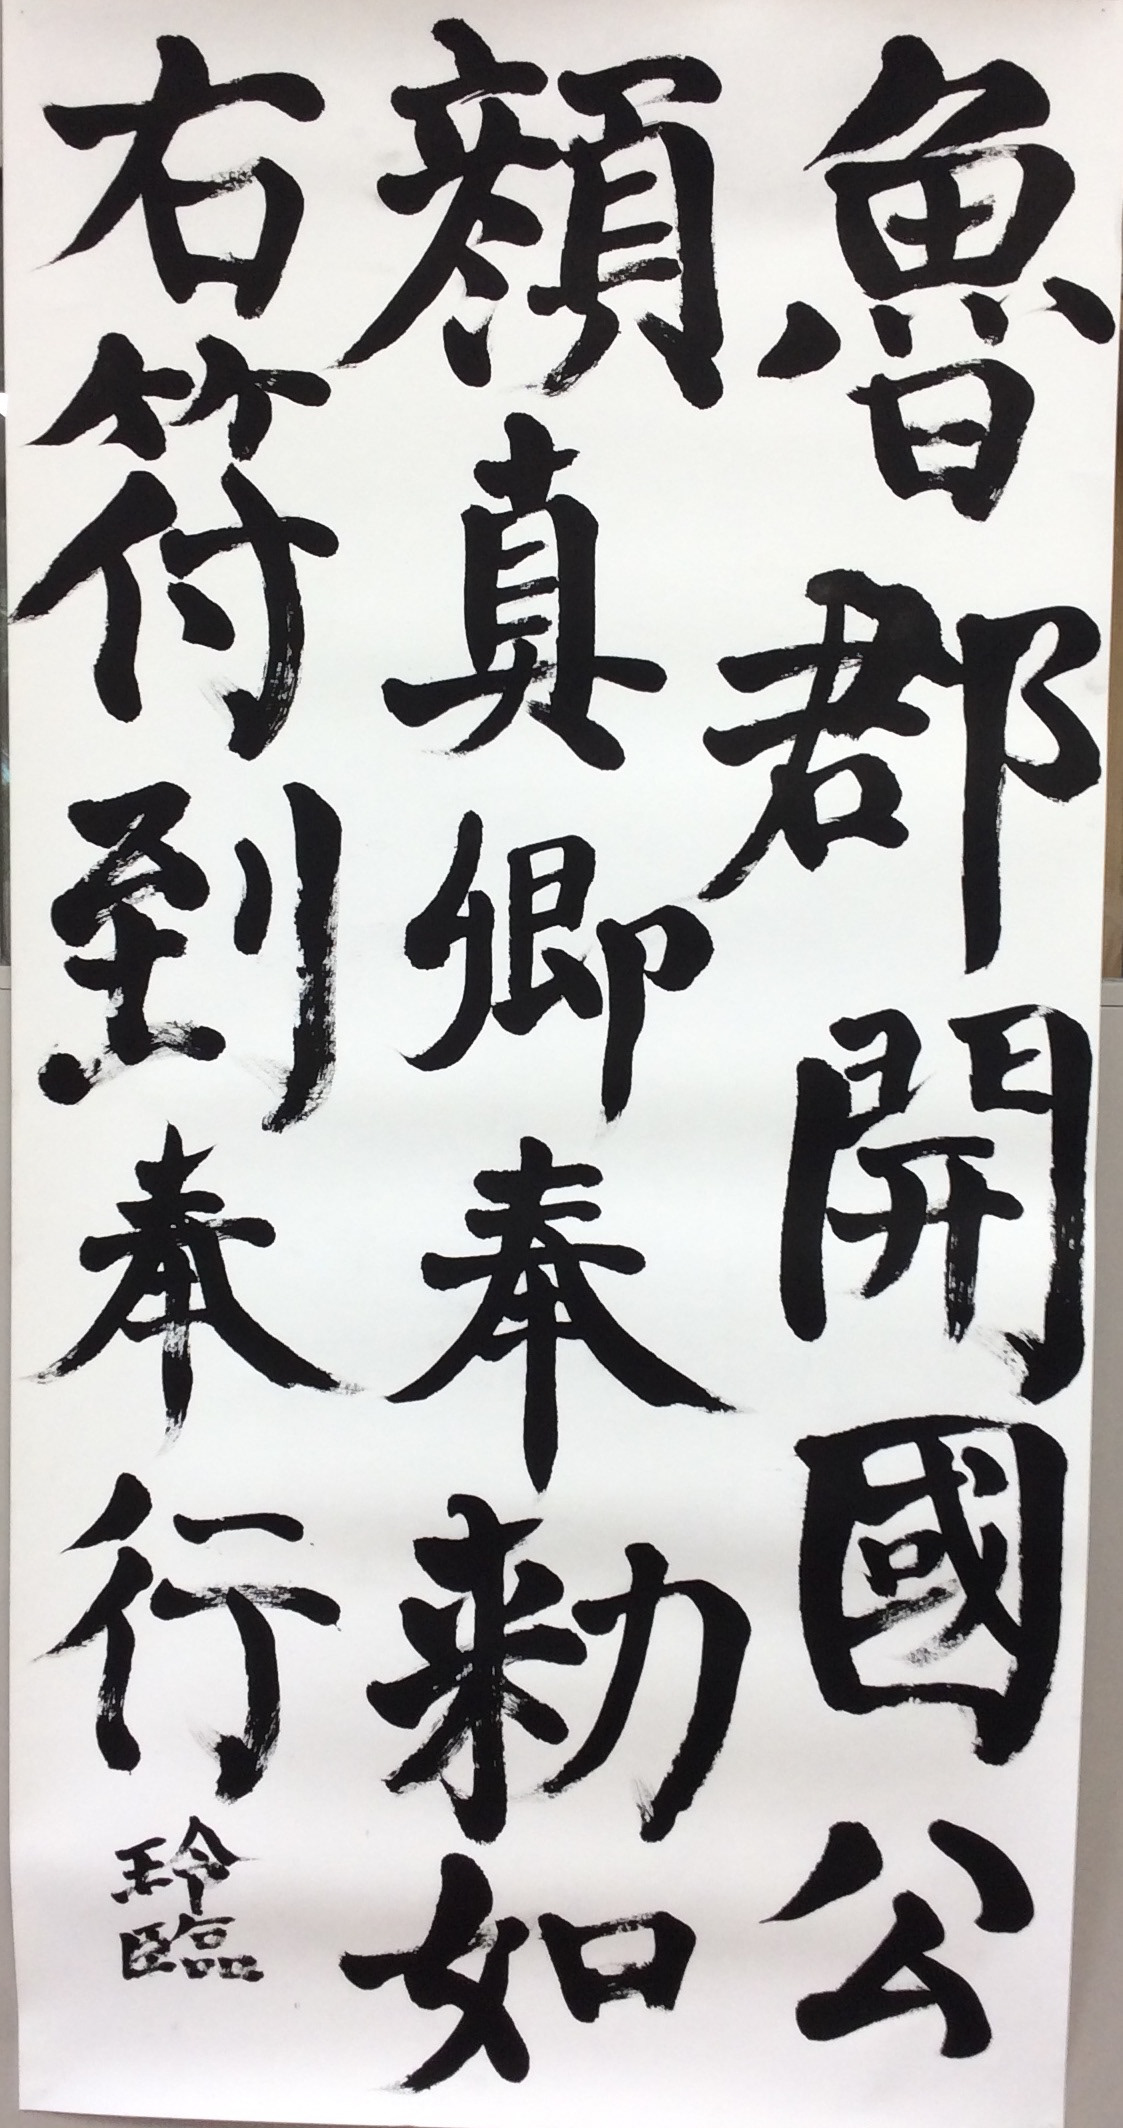 魯郡開國公
顔真卿奉勅如
右符到奉行
玲臨